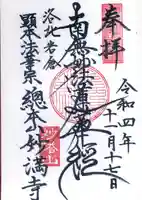 奉拝
令和四年
十月十七日
南無妙法蓮華経
洛北岩倉
顕本法華宗
總本山妙満寺